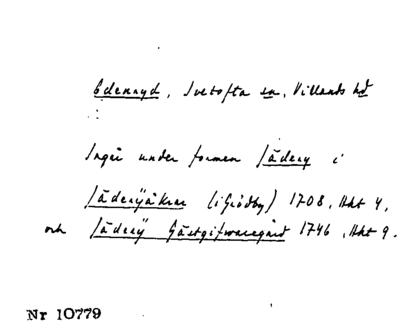 Edenryd, Ivetofta sn, Villands hd
Ingår under formen Jädery i
Jäderÿåkrar (i Grödby) 1708, Akt 4,
och Jäderÿ Gästgifwaregård 1746, Akt 9.
Nr 10779